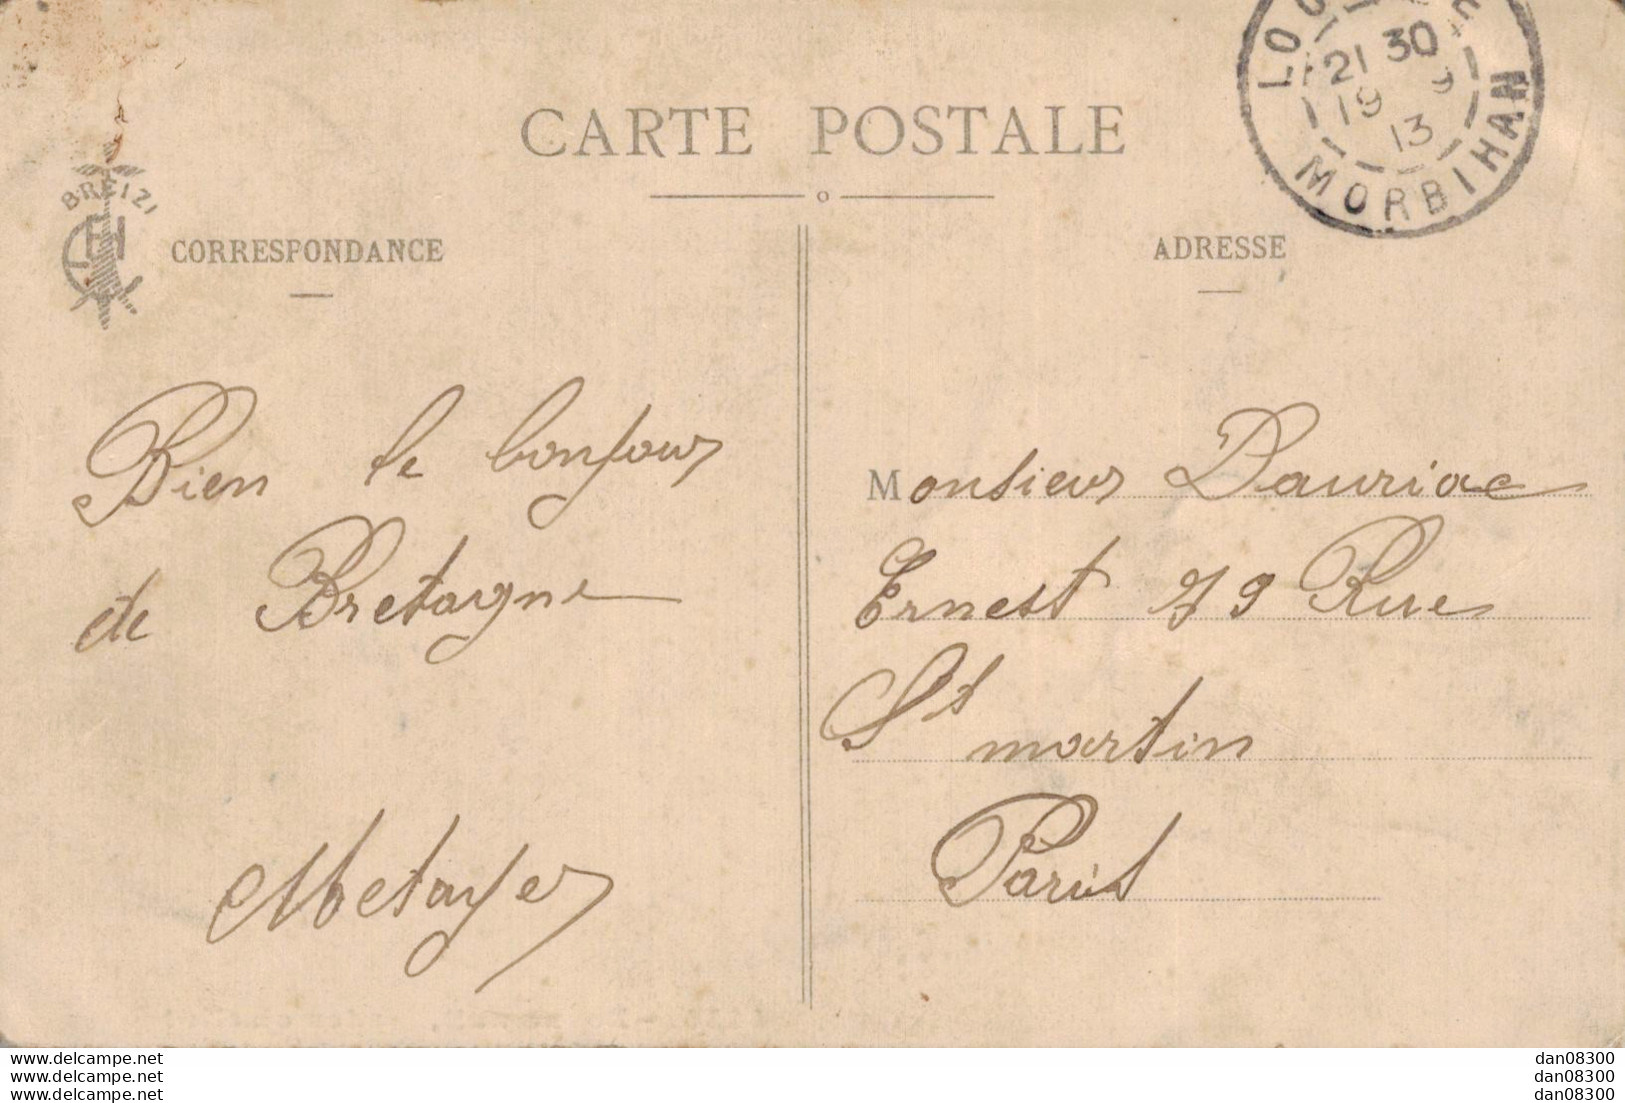 CARTE POSTALE
BREIZ
EH
CORRESPONDANCE
ADRESSE
21 30
19 9
13
MORBIHAN
Bien le bonjour
de Bretagne
Metayer
Monsieur Dauriac
Ernest 79 Rue
St martin
Paris
www.delcampe.net
www.delcampe.net
www.delcampe.net
dan08300
dan08300
dan08300